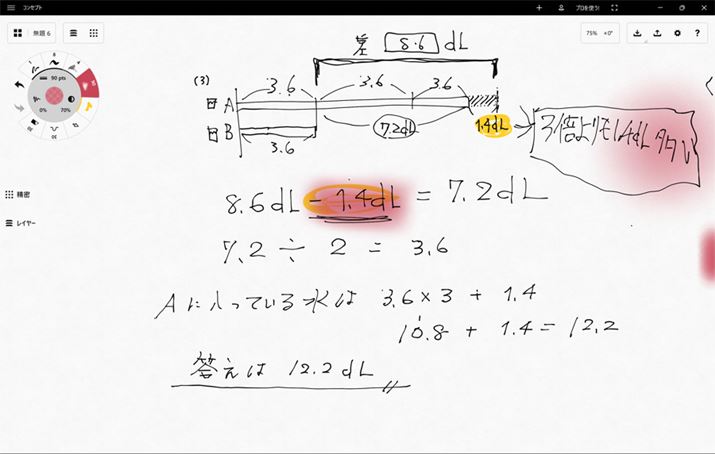 コンセプト
プロを使う!
無題 6
75% +0°
90 pts
0% 70%
精密
レイヤー
差 8.6 dL
(3)
3.6 3.6 3.6
A
7.2dL 1.4dL → 3倍よりも1.4dL多い
B
3.6
8.6dL - 1.4dL = 7.2dL
7.2 ÷ 2 = 3.6
Aに入っている水は 3.6×3 + 1.4
10.8 + 1.4 = 12.2
答えは 12.2dL